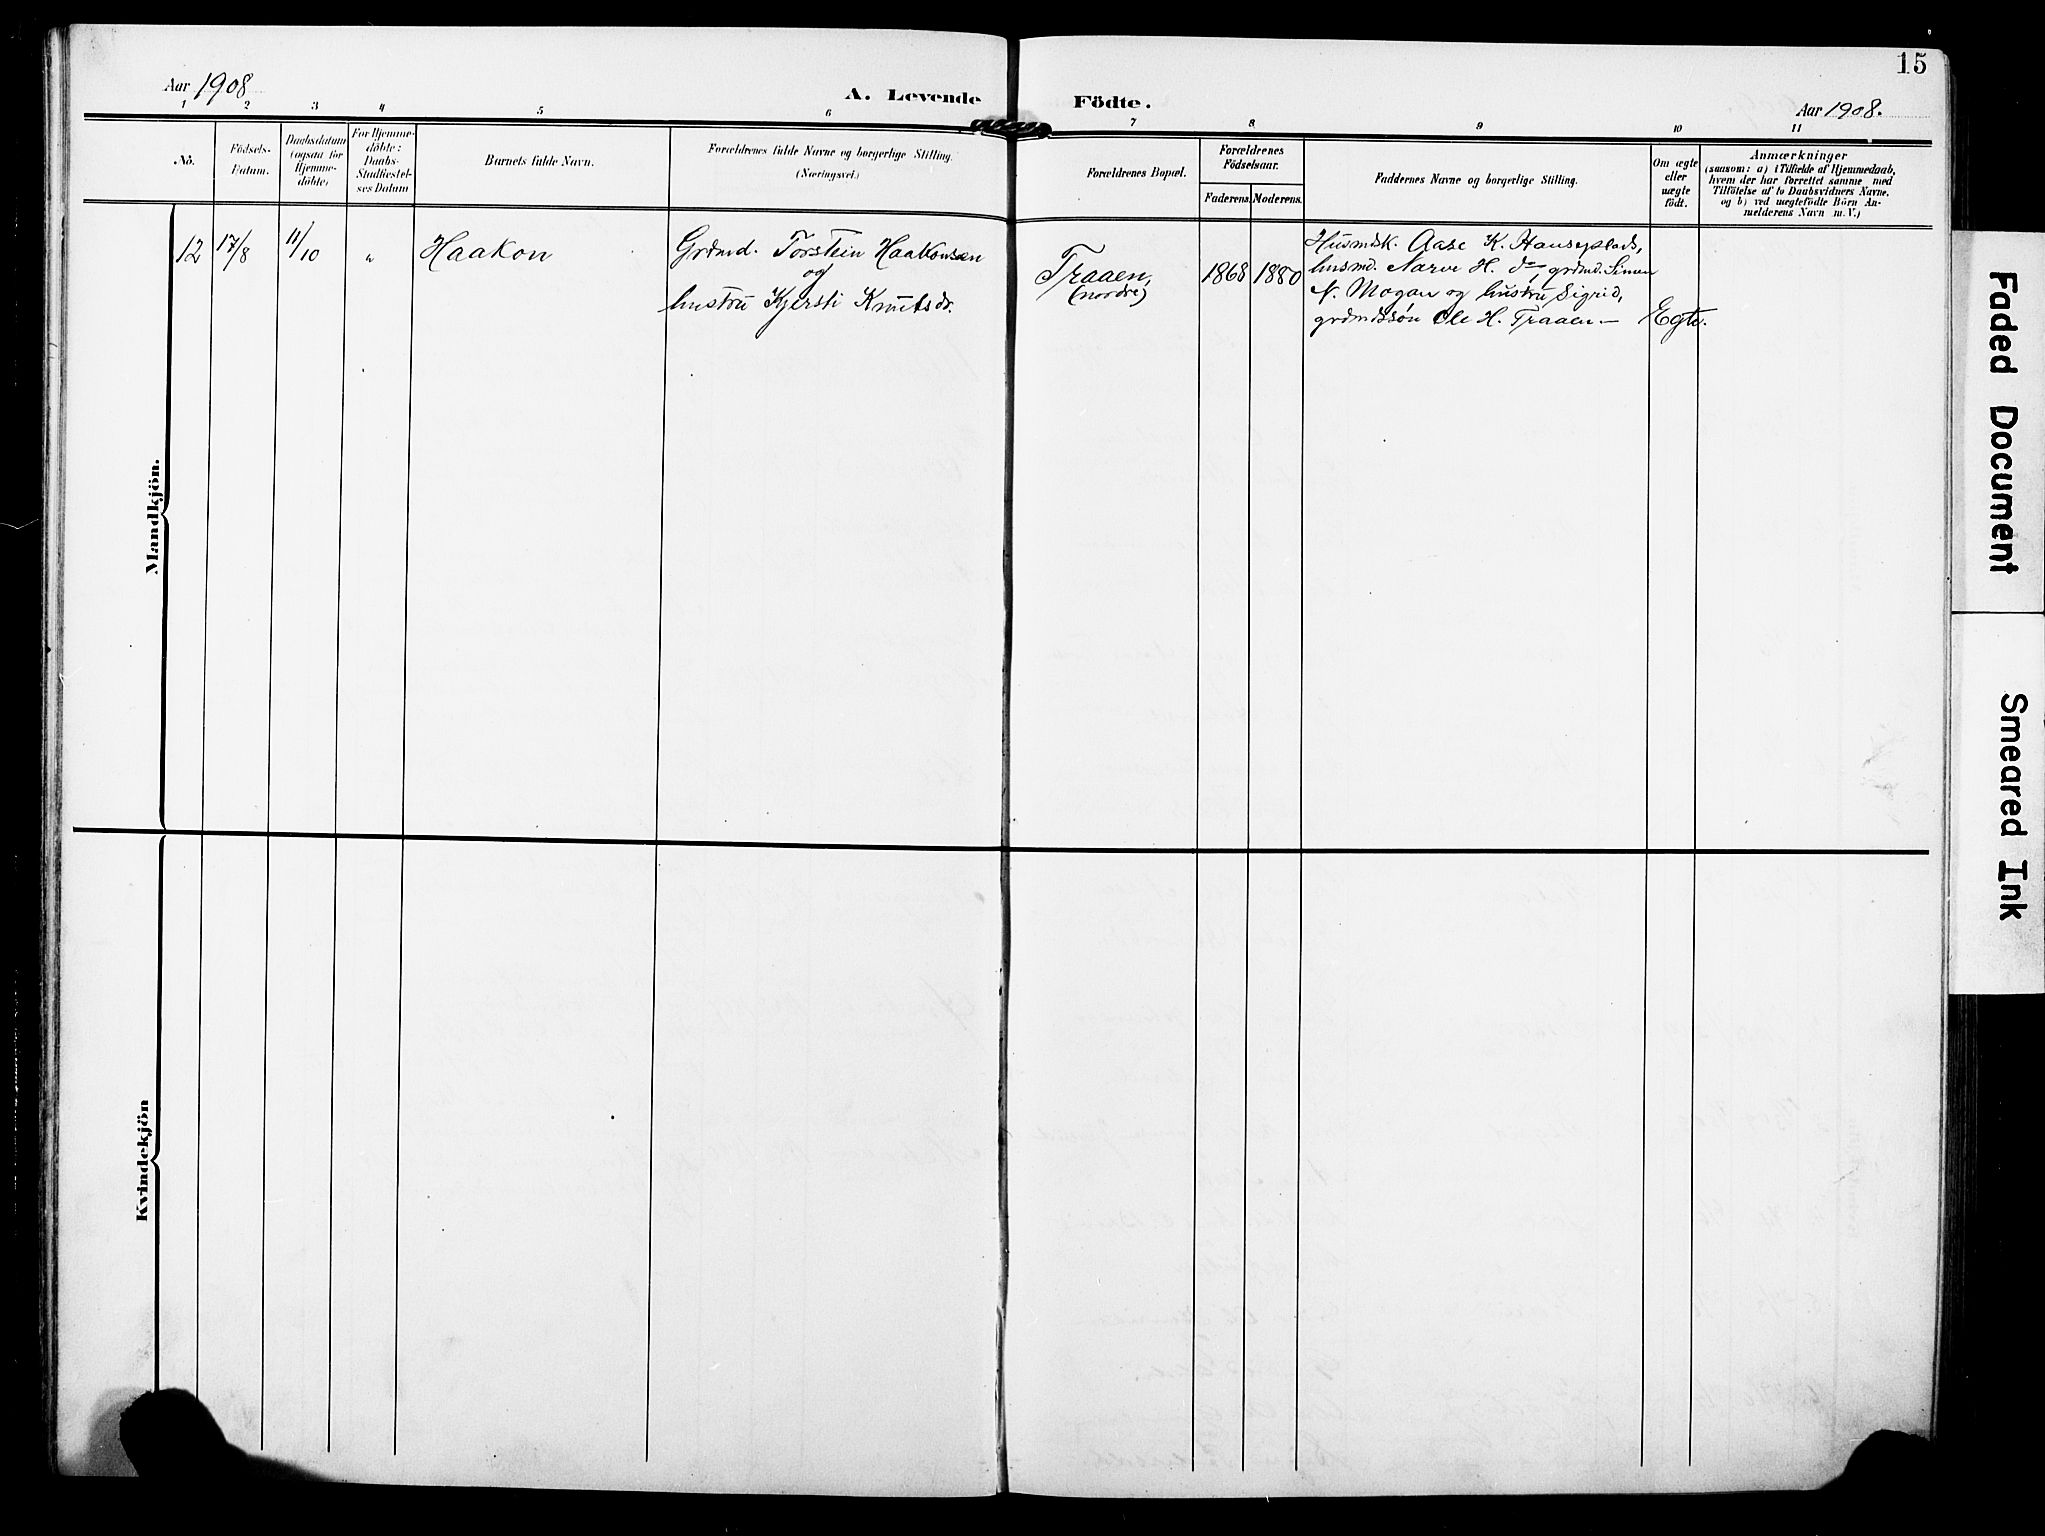 15
Aar 1908
A. Levende Födte.
Aar 1908.
1 2 3 4 5 6 7 8 9 10 11
No.
Födsels-
Datum.
Daabsdatum
(ogsaa for
Hjemme-
döbte)
For Hjemme-
döbte:
Daabs-
Stadfæstel-
ses Datum
Barnets fulde Navn.
Forældrenes fulde Navne og borgerlige Stilling.
(Næringsvei.)
Forældrenes Bopæl.
Forældrenes
Födselsaar.
Faderens. Moderens.
Faddernes Navne og borgerlige Stilling.
Om ægte
eller
uægte
födt.
Anmærkninger
(saasom: a) i Tilfælde af Hjemmedaab,
hvem der har forrettet samme med
Tilföielse af to Daabsvidners Navne.
og b) ved uægtefödte Börn An-
melderens Navn m. V.)
Mandkjön.
12 17/8 11/10 " Haakon
Grdmd. Torstein Haakonsen
og
hustru Kjersti Knutsdr.
Traaen,
(nordre)
1868 1880
Husmdsk. Aase K. Hanseplads,
husmd. Narve H. do, grdmd. Simen
N. Mogan og hustru Sigrid,
grdmdssön Ole H. Traaen—
Egte.
Kvindekjön
Faded Document
Smeared Ink